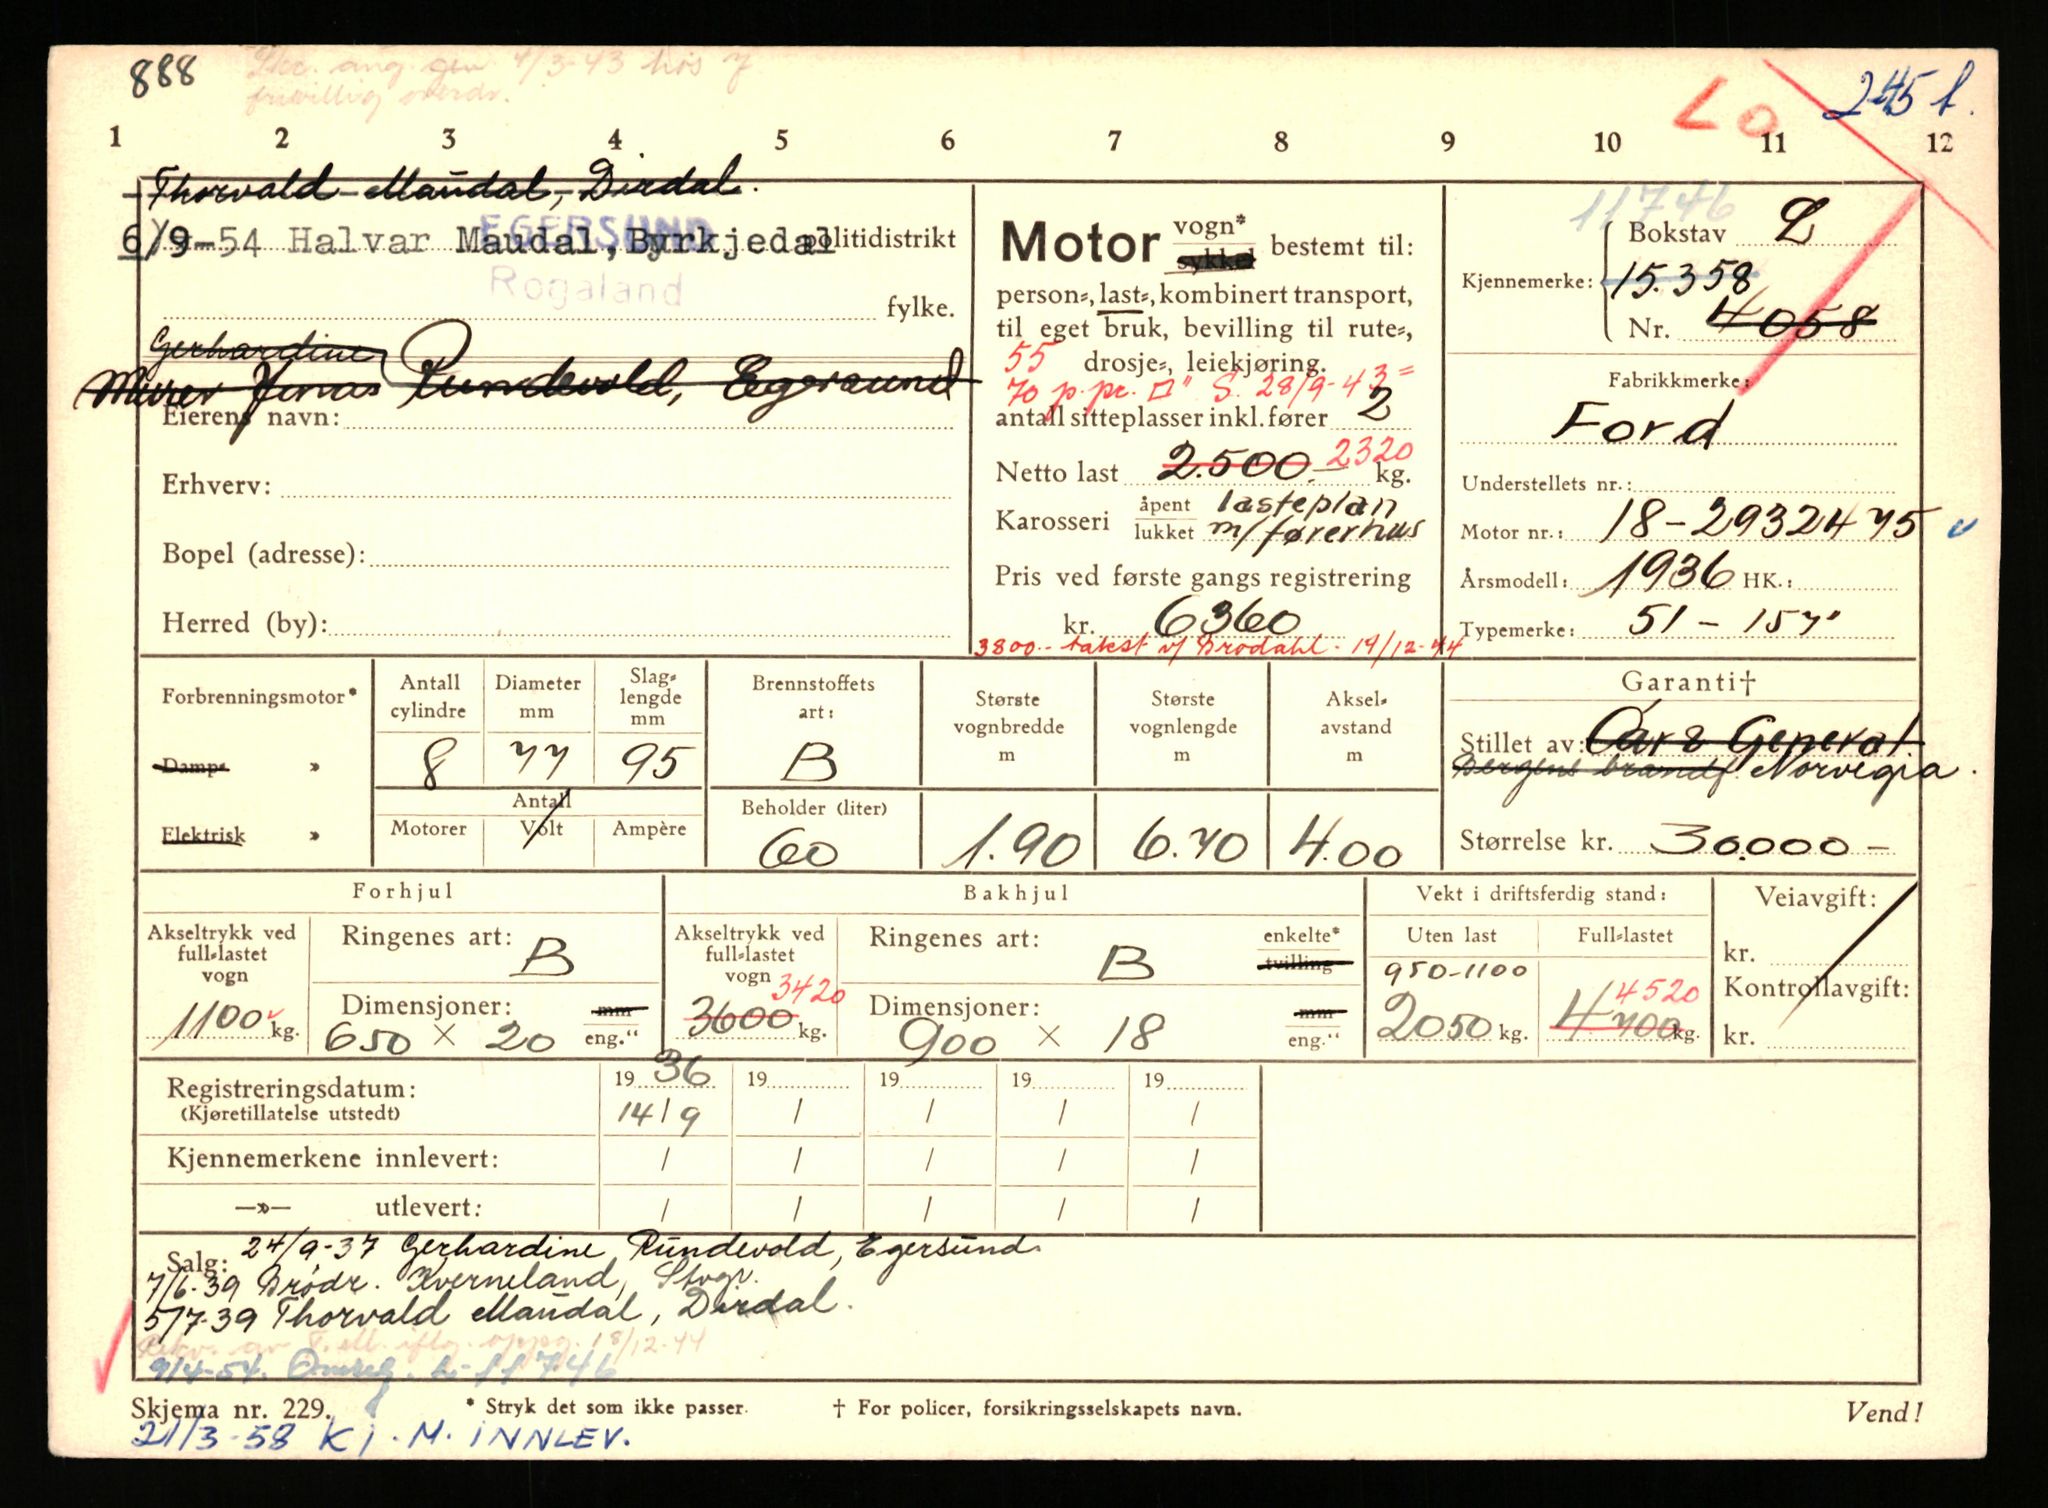 888
245 f.
1 2 3 4 5 6 7 8 9 10 11 12
Thorvald Maudal, Dirdal.
EGERSUND
6/9-54 Halvar Maudal, Byrkjedal politidistrikt
Rogaland
fylke.
Gerhardine
Murer Jonas Rundevold, Egersund
Eierens navn:
Erhverv:
Bopel (adresse):
Herred (by):
Motor vogn* sykkel bestemt til:
person-, last-, kombinert transport,
til eget bruk, bevilling til rute-,
55 drosje-, leiekjøring.
70 p. pr. □" S. 28/9-43
antall sitteplasser inkl. fører 2
Netto last 2.500.- 2320 kg.
Karosseri åpent lukket lasteplan
m/førerhus
Pris ved første gangs registrering
kr. 6360
3800.- takst v/ Brodahl. 19/12-44
11746
Bokstav L
Kjennemerke: 15.358
Nr. 4058
Fabrikkmerke:
Ford
Understellets nr.:
Motor nr.: 18-2932475
Årsmodell: 1936 HK.:
Typemerke: 51-157"
Forbrenningsmotor*
Damp- »
Elektrisk »
Antall cylindre 8
Diameter mm 77
Slag-lengde mm 95
Antall
Motorer Volt Ampère
Brennstoffets art: B
Beholder (liter) 60
Største vognbredde m 1.90
Største vognlengde m 6.70
Aksel-avstand m 4.00
Garanti†
Stillet av: Cars General.
Bergens brand Norvegia.
Størrelse kr. 30.000-
Forhjul
Akseltrykk ved full-lastet vogn 1100 kg.
Ringenes art: B
Dimensjoner: 650 × 20 mm eng."
Bakhjul
Akseltrykk ved full-lastet vogn 3420
3600 kg.
Ringenes art: B enkelte* tvilling
Dimensjoner: 900 × 18 mm eng."
Vekt i driftsferdig stand:
Uten last
950-1100
2050 kg.
Full-lastet
4520
4700 kg.
Veiavgift:
kr.
Kontrollavgift:
kr.
Registreringsdatum: 19 36 19 19 19 19
(Kjøretillatelse utstedt) 14/9 / / / /
Kjennemerkene innlevert: / / / / /
—»— utlevert: / / / / /
Salg: 24/9-37 Gerhardine Rundevold, Egersund
7/6-39 Brødr. Kverneland, Stvgr.
5/7-39 Thorvald Maudal, Dirdal.
Rekv. av T. M. iflg. oppg. 18/12-44
9/4-54. Omreg. L-11746
Skjema nr. 229. * Stryk det som ikke passer. † For policer, forsikringsselskapets navn. Vend!
21/3-58 KJ.M. INNLEV.